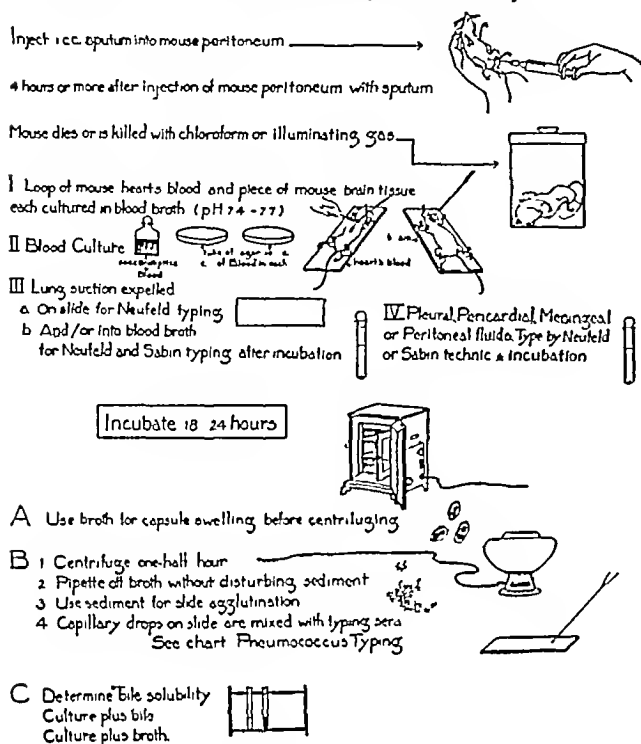 Inject 1 c.c. sputum into mouse peritoneum
4 hours or more after injection of mouse peritoneum with sputum
Mouse dies or is killed with chloroform or illuminating gas
I Loop of mouse hearts blood and piece of mouse brain tissue
each cultured in blood broth (pH 7.4-7.7)
II Blood Culture
Blood
Tube of agar
of Blood in each
hearts blood
III Lung suction expelled
a On slide for Neufeld typing
b And/or into blood broth
for Neufeld and Sabin typing after incubation
IV Pleural, Pericardial, Meningeal
or Peritoneal fluids. Type by Neufeld
or Sabin technic & incubation
Incubate 18 24 hours
A Use broth for capsule swelling before centrifuging
B 1 Centrifuge one-half hour
2 Pipette off broth without disturbing sediment
3 Use sediment for slide agglutination
4 Capillary drops on slide are mixed with typing sera
See chart Pneumococcus Typing
C Determine bile solubility
Culture plus bile
Culture plus broth.